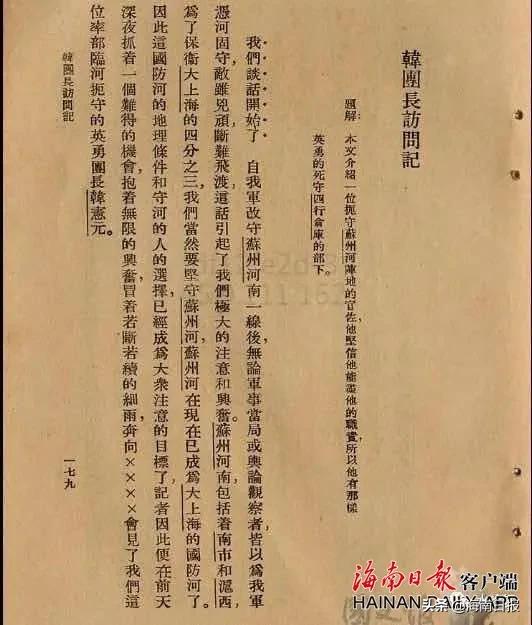 韓團長訪問記
題解：本文介紹一位扼守蘇州河陣地的官佐，他堅信他能盡他的職責，所以他有那樣
英勇的死守四行倉庫的部下。
我們談話開始了　自我軍改守蘇州河南一線後，無論軍事當局或輿論觀察者，皆以爲我軍
憑河固守，敵雖兇頑，斷難飛渡，這話引起了我們極大的注意和興奮。蘇州河南，包括着南市和滬西，
爲了保衛大上海的四分之三，我們當然要堅守蘇州河，蘇州河在現在已成爲大上海的國防河了。
因此這國防河的地理條件和守河的人的選擇，已經成爲大衆注意的目標了，記者因此便在前天
深夜抓着一個難得的機會，抱着無限的興奮，冒着若斷若續的細雨，奔向××××會見了我們這
位率部臨河扼守的英勇團長韓憲元。
韓團長訪問記
一七九
海南日报 客户端
HAINAN DAILY APP
头条 @海南日报